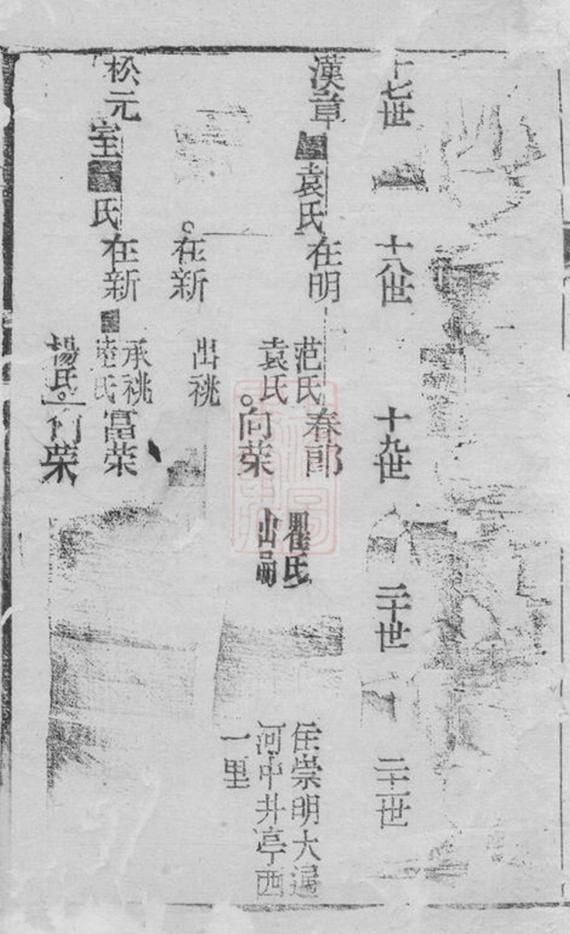 十七世
十八世
十九世
二十世
二十一世
漢章
袁氏
在明
范氏
袁氏
春郎
瞿氏
住崇明大
河中井亭西
一里
向荣
在新
出祧
松元
室
氏
在新
承祧
陸氏
富荣
楊氏
向荣